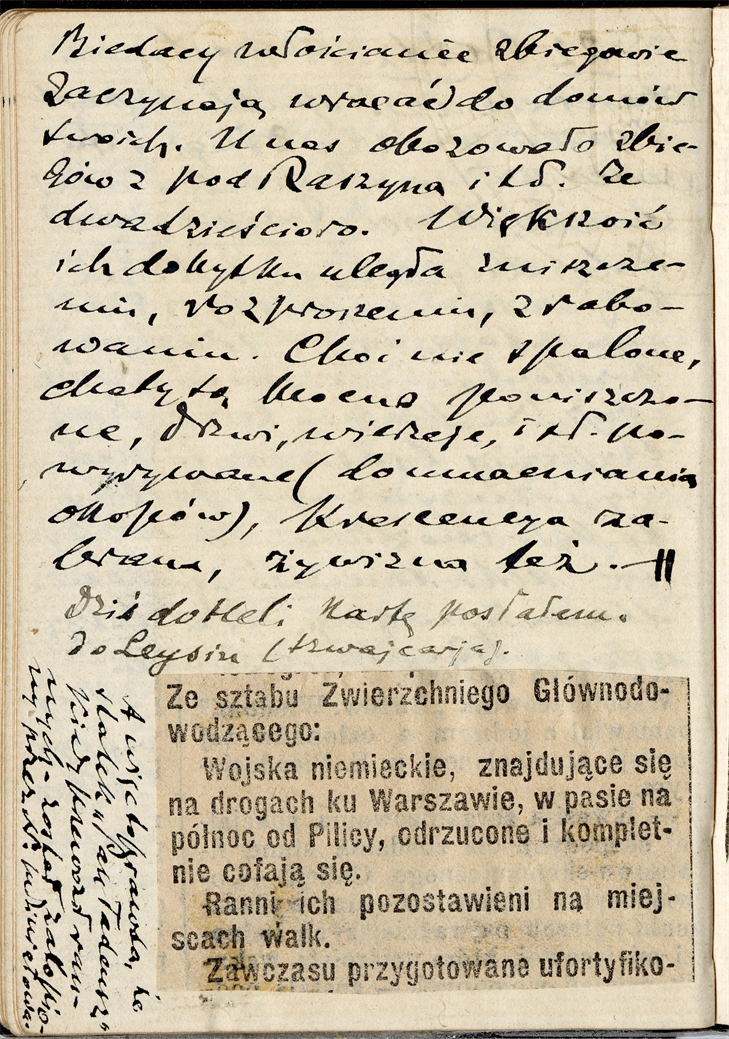 Biedacy włościanie zbiegowie
zaczynają wracać do domów
swoich. U nas obozowało zbie-
gów z pod Raszyna i td. ze
dwadzieścioro. Większość
ich dobytku uległa zniszcze-
niu, rozproszeniu, zrabo-
waniu. Choć nie spalone,
chaty są mocno poniszczo-
ne, drzwi, wierzeje, i td. po-
wyrywane (do umacniania
okopów), Krescencya za-
brana, żywizna też.
Dziś do Heli kartę posłałem.
do Leysin (Szwajcarja).
Ze sztabu Zwierzchniego Głównodo-
wodzącego:
Wojska niemieckie, znajdujące się
na drogach ku Warszawie, w pasie na
północ od Pilicy, odrzucone i komplet-
nie cofają się.
Ranni ich pozostawieni na miej-
scach walk.
Zawczasu przygotowane ufortyfiko-
A więc to prawda, że
statek "Pan Tadeusz"
kiedy przewoził ran-
nych- został zatopio-
ny przez